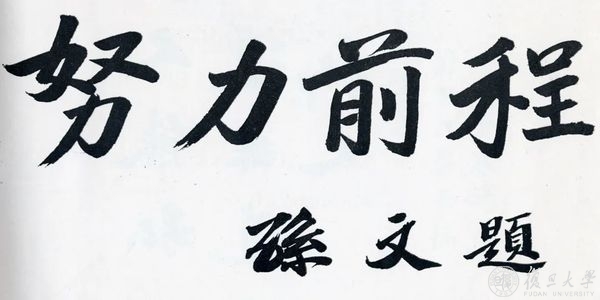 努力前程
孫文題
復旦大学
FUDAN UNIVERSITY